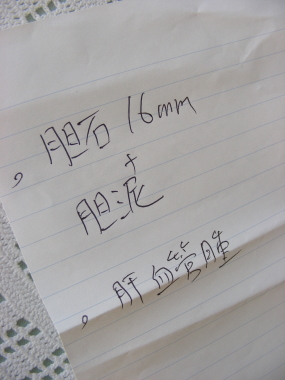 , 胆石 16mm
+
胆泥
, 肝血管腫